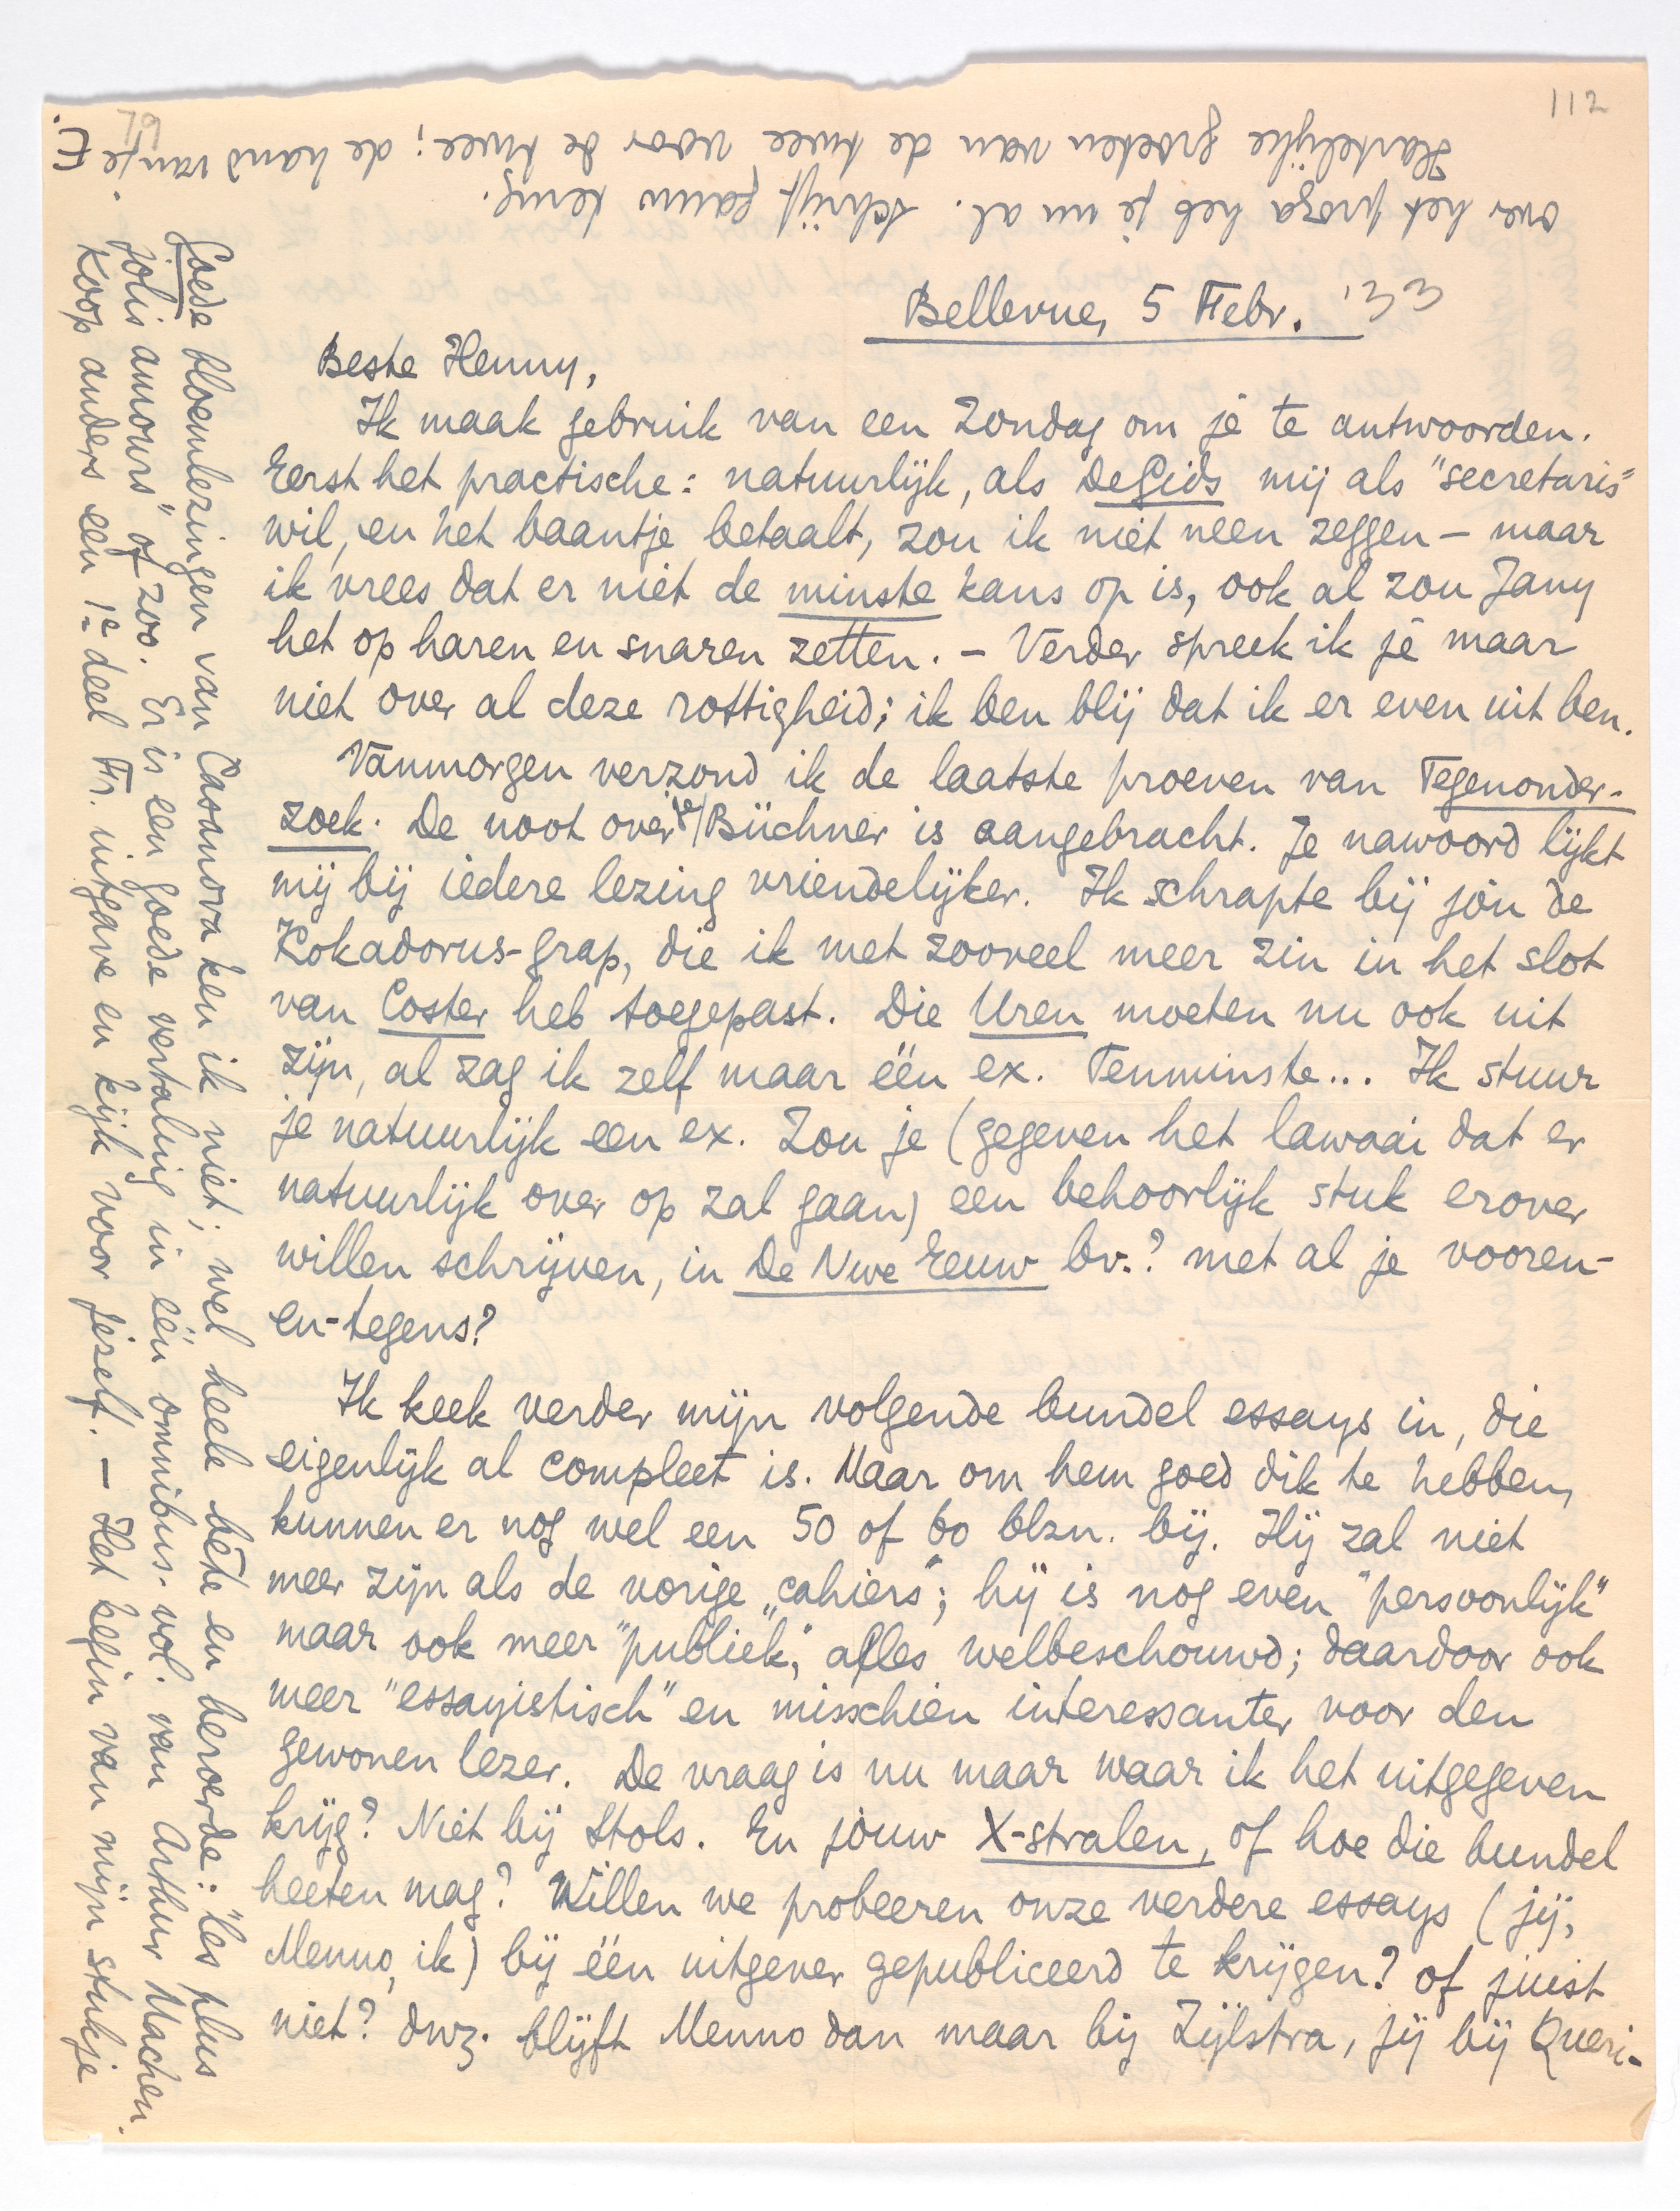 112
79
Bellevue, 5 Febr. '33
Beste Henny,
Ik maak gebruik van een Zondag om je te antwoorden.
Eerst het practische: natuurlijk, als De Gids mij als "secretaris"
wil, en het baantje betaalt, zou ik niet neen zeggen – maar
ik vrees dat er niet de minste kans op is, ook al zou Jany
het op haren en snaren zetten. – Verder spreek ik je maar
niet over al deze rottigheid; ik ben blij dat ik er even uit ben.
Vanmorgen verzond ik de laatste proeven van Tegenonder-
zoek. De noot over Büchner is aangebracht. Je nawoord lijkt
mij bij iedere lezing vriendelijker. Ik schrapte bij jòu de
Kokadorus-grap, die ik met zooveel meer zin in het slot
van Coster heb toegepast. Die Uren moeten nu ook uit
zijn, al zag ik zelf maar één ex. Tenminste... Ik stuur
je natuurlijk een ex. Zou je (gegeven het lawaai dat er
natuurlijk over op zal gaan) een behoorlijk stuk erover
willen schrijven, in De Nwe Eeuw bv.? met al je vooren-
en-tegens?
Ik keek verder mijn volgende bundel essays in, die
eigenlijk al compleet is. Maar om hem goed dik te hebben,
kunnen er nog wel een 50 of 60 blzn. bij. Hij zal niet
meer zijn als de vorige „cahiers"; hij is nog even "persoonlijk"
maar ook meer "publiek", alles welbeschouwd; daardoor ook
meer "essayistisch" en misschien interessanter voor den
gewonen lezer. De vraag is nu maar waar ik het uitgegeven
krijg? Niet bij Stols. En jouw X-stralen, of hoe die bundel
heeten mag? Willen we probeeren onze verdere essays (jij,
Menno, ik) bij één uitgever gepubliceerd te krijgen? of juist
niet? dwz. blijft Menno dan maar bij Zijlstra, jij bij Queri-
Goede bloemlezingen van Casanova ken ik niet; wel heele bête en beroerde: "les plus
jolis amours" of zoo. Er is een goede vertaling in één omnibus-vol. van Arthur Machen.
Koop anders een 1e deel Fr. uitgave en kijk voor jezelf. – Het begin van mijn stukje
over het proza heb je nu al. Schrijf gauw terug.
Hartelijke groeten van de twee voor de twee; de hand van je
E.